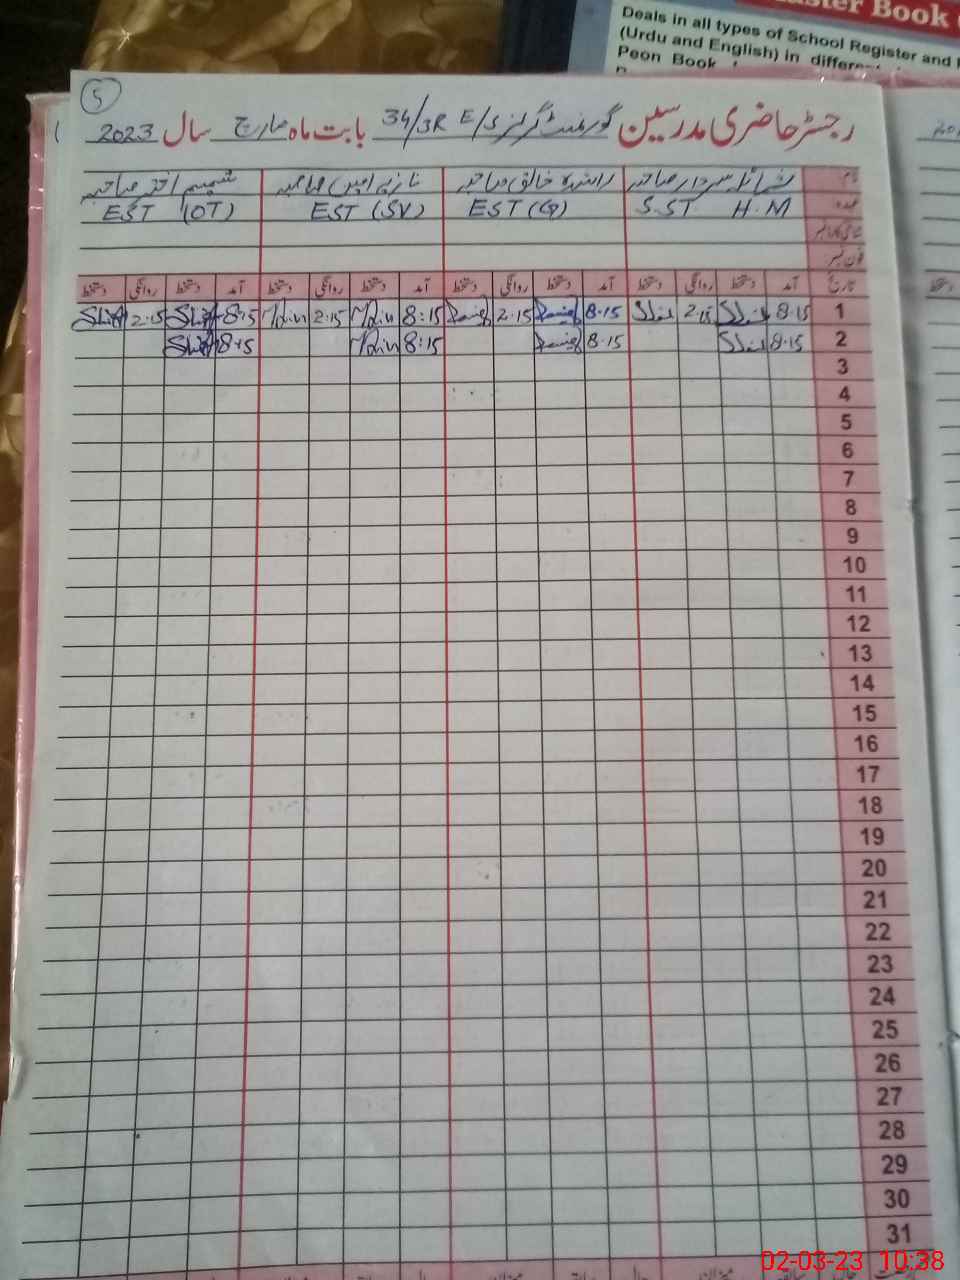 aster Book
Deals in all types of School Register and
(Urdu and English) in different
Peon Book
5
رجسٹر حاضری مدرسین گورنمنٹ گرلز E/S 34/3R بابت ماہ مارچ سال 2023
نام شمائلہ سردار صاحبہ راشدہ خالق صاحبہ نازیہ امین صاحبہ شمیم اختر صاحبہ
عہدہ S.ST H.M EST (G) EST (SV) EST (OT)
شناختی کارڈ نمبر
فون نمبر
تاریخ آمد دستخط روانگی دستخط آمد دستخط روانگی دستخط آمد دستخط روانگی دستخط آمد دستخط روانگی دستخط
1 8.15 2.15 8.15 2.15 8:15 2.15 8.15 2.15
2 8.15 8.15 8:15 8.15
3
4
5
6
7
8
9
10
11
12
13
14
15
16
17
18
19
20
21
22
23
24
25
26
27
28
29
30
31
02-03-23 10:38